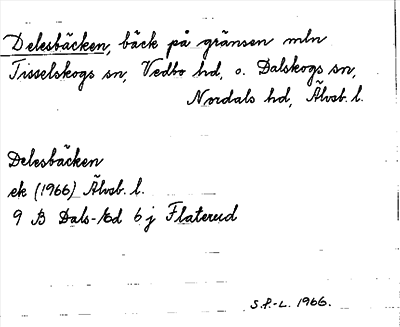 Delesbäcken, bäck på gränsen mln
Tisselskogs sn, Vedbo hd, o. Dalskogs sn,
Nordals hd, Älvsb. l.
Delesbäcken
ek (1966) Älvsb. l.
9 B Dals-Ed 6 j Flaterud
S.P.-L. 1966.